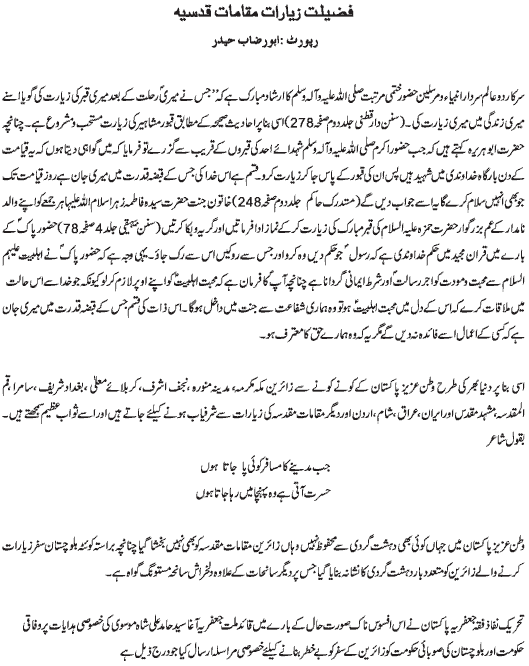 فضیلت زیارات مقامات قدسیہ
رپورٹ :ابورضاب حیدر
سرکار دو عالم سردار انبیاء ومرسلین حضور ختمی مرتبت صلی اللہ علیہ وآلہ وسلم کا ارشاد مبارک ہے کہ ’’جس نے میری رحلت کے بعد میری قبر کی زیارت کی گویا اسنے
میری زندگی میں میری زیارت کی۔ (سنن دار قطنی جلد دوم صفحہ 278) اسی بنا پر احادیث صحیحہ کے مطابق قبور مشاہیر کی زیارت مستحب ومشروع ہے۔ چنانچہ
حضرت ابو ہریرہ کہتے ہیں کہ جب حضور اکرم صلی اللہ علیہ وآلہ وسلم شہدائے احد کی قبروں کے قریب سے گزرے تو فرمایا کہ میں گواہی دیتا ہوں کہ یہ قیامت
کے دن بارگاہ خداوندی میں شہید ہیں پس ان کی قبور کے پاس جا کر زیارت کرو۔ قسم ہے اس خدا کی جس کے قبضہ قدرت میں میری جان ہے روز قیامت تک
جو بھی انہیں سلام کرے گا یہ اسے جواب دیں گے (مستدرک حاکم جلد دوم صفحہ 248) خاتون جنت حضرت سیدہ فاطمہ زہرا سلام اللہ علیہا ہر جمعے کو اپنے والد
نامدار کے عم بزرگوار حضرت حمزہ علیہ السلام کی قبر مبارک کی زیارت کر کے نماز ادا فرماتیں اور گریہ وبکا کرتیں (سنن بیہقی جلد 4 صفحہ 78) حضور پاکؐ کے
بارے میں قران مجید میں حکم خداوندی ہے کہ رسولؐ جو حکم دیں وہ کرو اور جس سے روکیں اس سے رک جاؤ۔ یہی وجہ ہے کہ حضور پاکؐ نے اہلبیت علیہم
السلام سے محبت ومودت کو اجر رسالت اور شرط ایمانی گردانا ہے چنانچہ آپؐ کا فرمان ہے کہ محبت اہلبیتؑ کو اپنے اوپر لازم کر لو کیونکہ جو خدا سے اس حالت میں
ملاقات کرے کہ اس کے دل میں محبت اہلبیتؑ ہو تو وہ ہماری شفاعت سے جنت میں داخل ہوگا۔ اس ذات کی قسم جس کے قبضہ قدرت میں میری جان
ہے کہ کسی کے اعمال اسے فائدہ نہ دیں گے مگر یہ کہ وہ ہمارے حق کا معترف ہو۔
اسی بنا پر دنیا بھر کی طرح وطن عزیز پاکستان کے کونے کونے سے زائرین مکہ مکرمہ، مدینہ منورہ، نجف اشرف، کربلائے معلٰی، بغداد شریف، سامرا، قم
المقدسہ، مشہد مقدس اور ایران، عراق، شام، اردن اور دیگر مقامات مقدسہ کی زیارات سے شرفیاب ہونے کیلئے جاتے ہیں اور اسے ثواب عظیم سمجھتے ہیں۔
بقول شاعر
جب مدینے کا مسافر کوئی پا جاتا ہوں
حسرت آتی ہے وہ پہنچا میں رہا جاتا ہوں
وطن عزیز پاکستان میں جہاں کوئی بھی دہشت گردی سے محفوظ نہیں وہاں زائرین مقامات مقدسہ کو بھی نہیں بخشا گیا چنانچہ براستہ کوئٹہ بلوچستان سفر زیارات
کرنے والے زائرین کو متعدد بار دہشت گردی کا نشانہ بنایا گیا جس پر دیگر سانحات کے علاوہ دلخراش سانحہ مستونگ گواہ ہے۔
تحریک نفاذ فقہ جعفریہ پاکستان نے اس افسوس ناک صورت حال کے بارے میں قائد ملت جعفریہ آغا سید حامد علی شاہ موسوی کی خصوصی ہدایات پر وفاقی
حکومت اور بلوچستان کی صوبائی حکومت کو زائرین کے سفر کو بے خطر بنانے کیلئے خصوصی مراسلہ ارسال کیا جو درج ذیل ہے